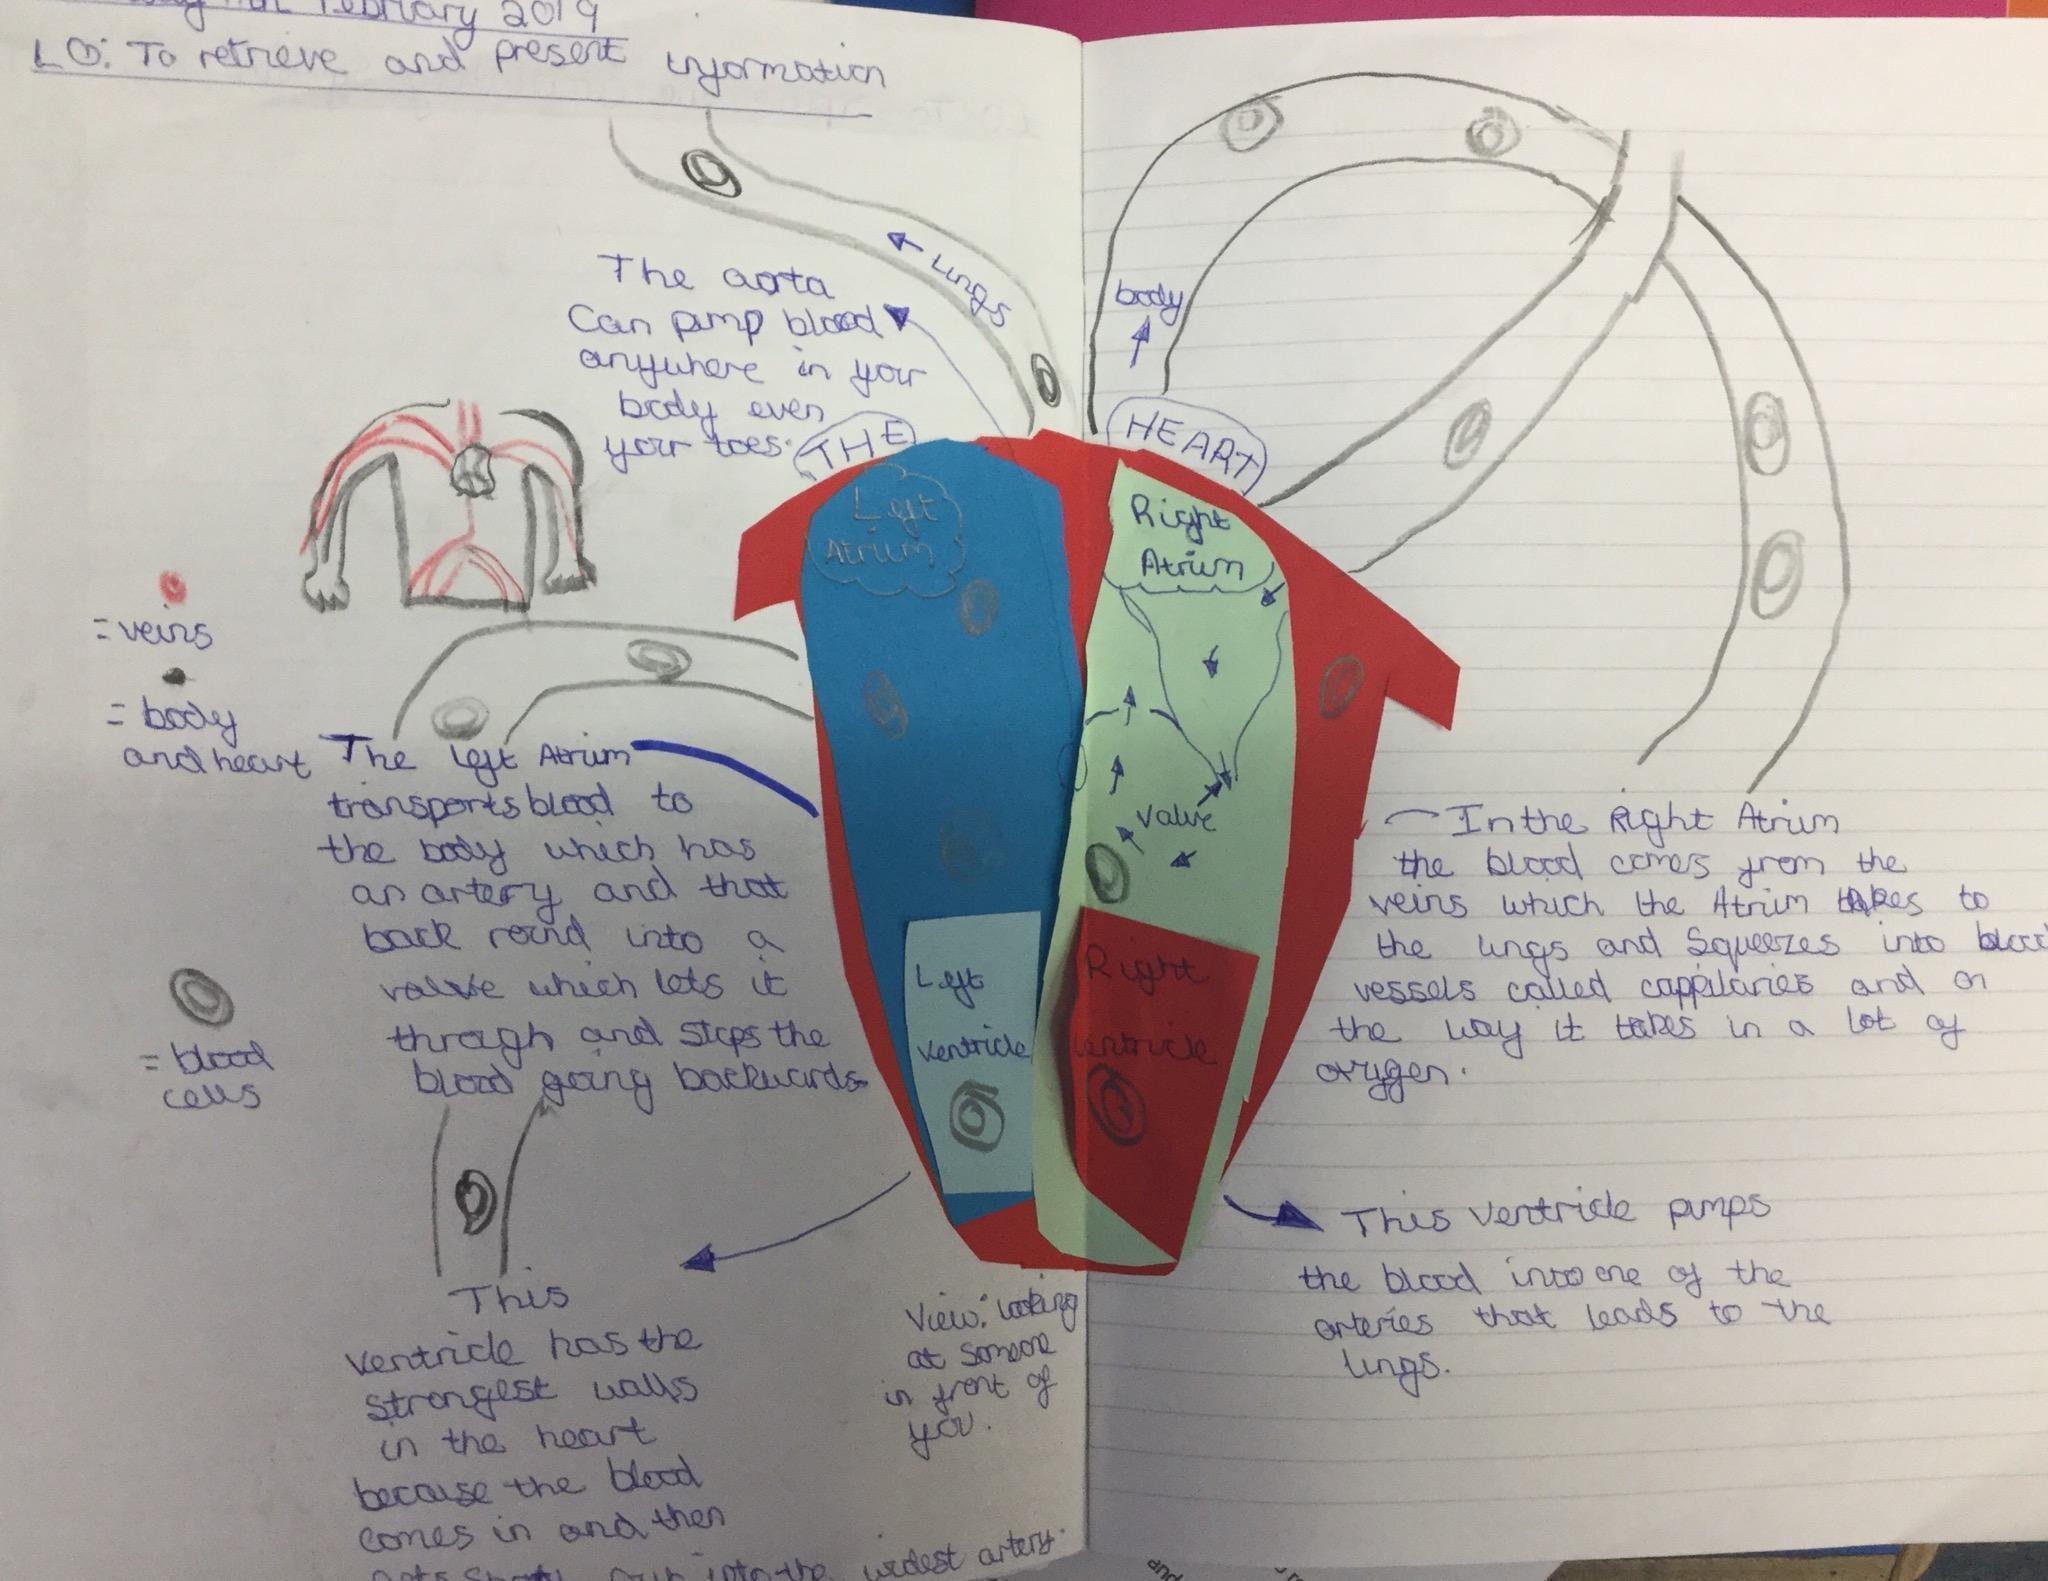 February 2019
LO: To retrieve and present information
The aorta
Can pump blood
anywhere in your
body even
your toes.
Lungs
body
THE HEART
Left
Atrium
Right
Atrium
valve
Left
ventricle
Right
Ventricle
= veins
= body
and heart
= blood
cells
The Left Atrium
transports blood to
the body which has
an artery and that
back round into a
valve which lets it
through and stops the
blood going backwards
This
ventricle has the
strongest walls
in the heart
because the blood
comes in and then
into the widest artery.
View: looking
at someone
in front of
you.
In the Right Atrium
the blood comes from the
veins which the Atrium takes to
the lungs and squeezes into blood
vessels called cappilaries and on
the way it takes in a lot of
oxygen.
This ventricle pumps
the blood into one of the
arteries that leads to the
lungs.
and